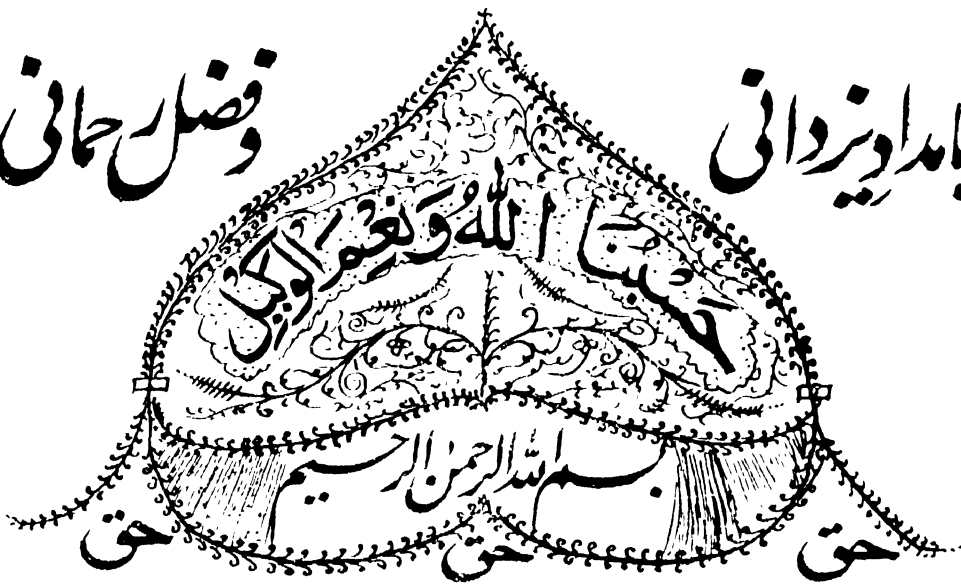 بامداد یزدانی و فضل رحمانی
حَسْبُنَا اللّٰهُ وَنِعْمَ الْوَكِيْل
بسم اللہ الرحمن الرحیم
حق حق حق